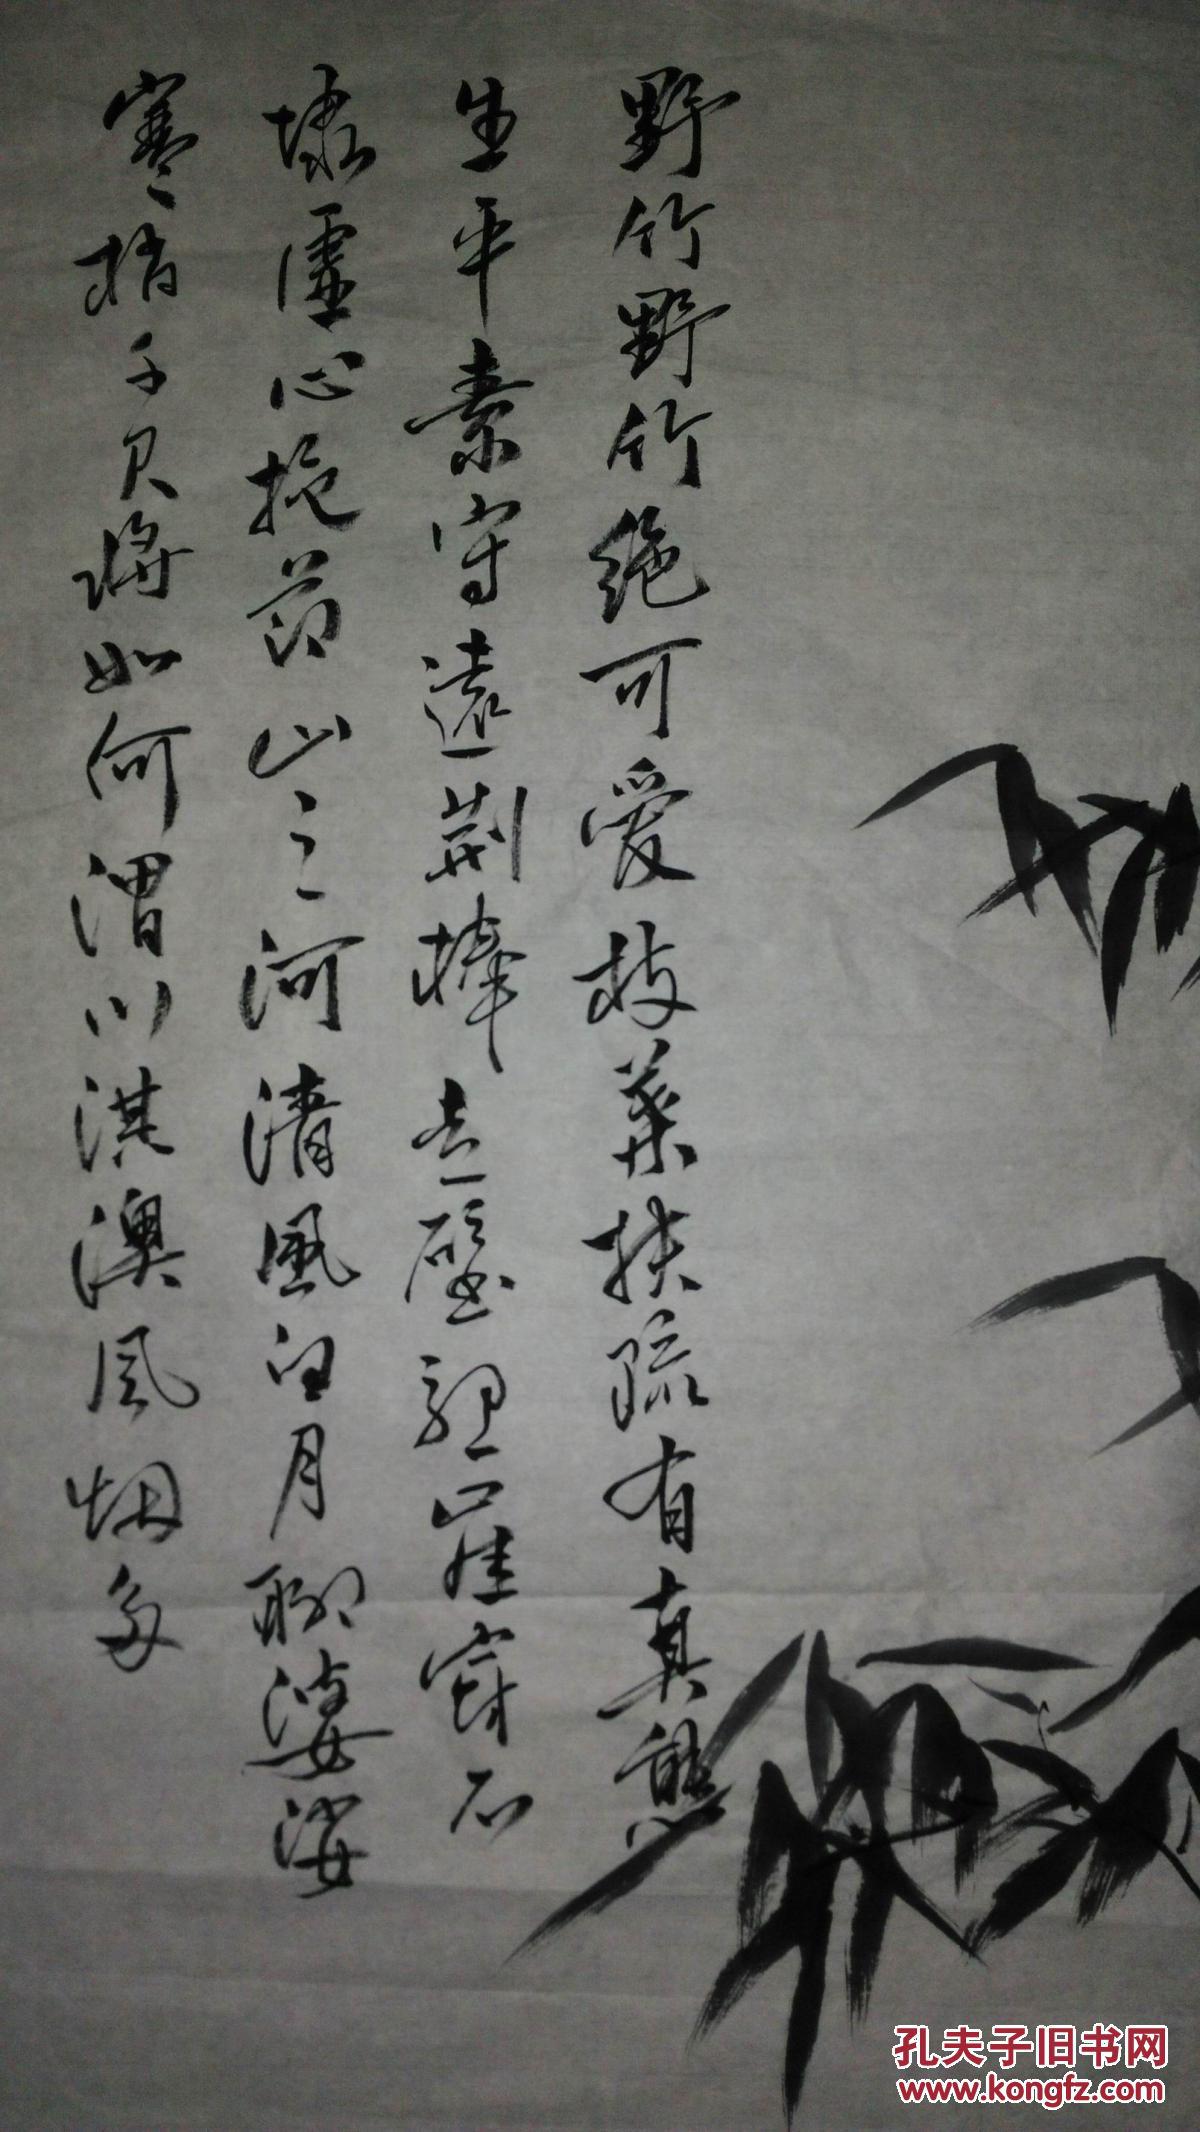 野竹野竹绝可爱枝葉扶疏有真態
生平素守遠荆榛走壁頭崖穿石
壕虚心抱節山之河清風白月聊婆娑
寒梢千尺将如何渭川淇澳風烟多
孔夫子旧书网
www.kongfz.com